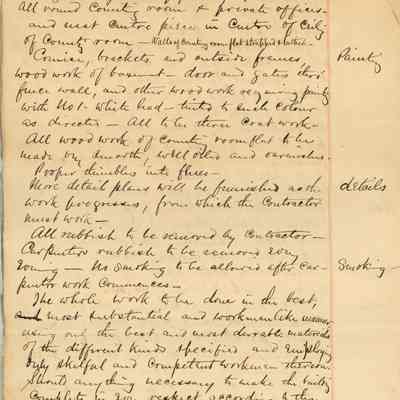 All round County room & private offices
and neat centre piece in Center of Ceilg
of County room — Walls of County room flat strapped & lathed —
Cornice, brackets and outside frames,
wood work of basem't — door and gates thro'
fence wall, and other wood work requiring paintg
with Hot white lead — tinted to such colour
as directed — All to be three coat work —
All wood work of County room flat to be
made very smooth, well oiled and varnished.
Proper thimbles into flues —
More detail plans will be furnished as the
work progresses, from which the Contractor
must work —
All rubbish to be removed by Contractor —
Carpenters rubbish to be removed every
eveng — No smoking to be allowed after car-
penter work Commences —
The whole work to be done in the best,
most substantial and workmanlike manner
using only the best and most durable materials
of the different kinds specified and Employing
only skilful and Competent workmen thereon.
Should anything necessary to make the buildg
Complete in every respect according to the
Paintg
details
Smoking —